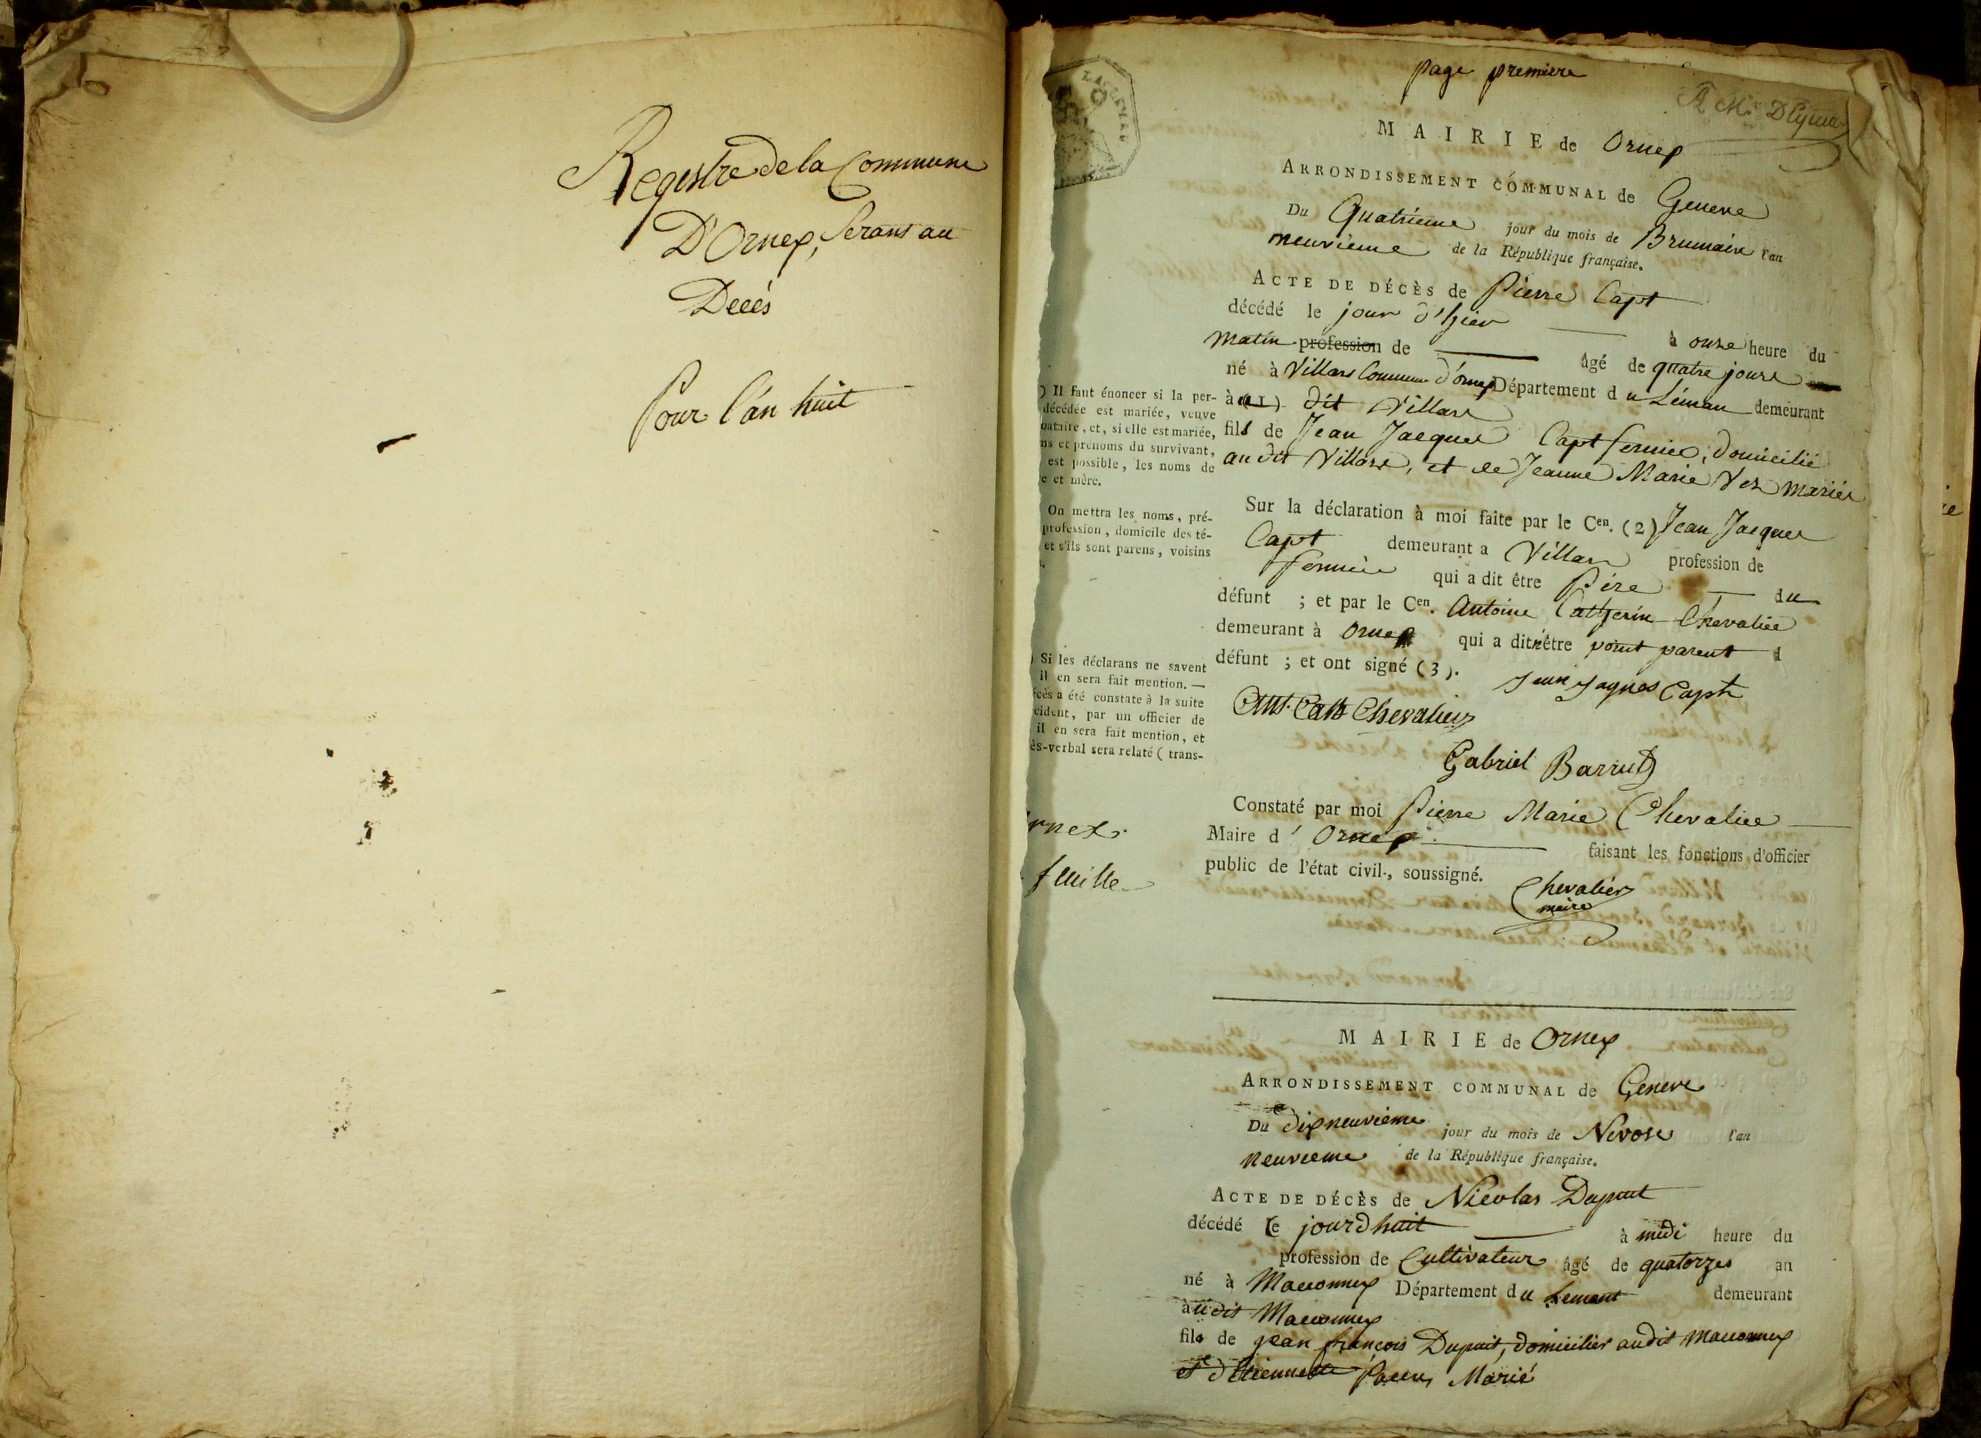 Registre de la Commune
D'Ornex, Servant au
Décés
Pour l'an huit
page premiere
MAIRIE de Ornex
ARRONDISSEMENT COMMUNAL de Geneve
Du Quatrieme jour du mois de Brumaire l'an
neuvieme de la République française.
ACTE DE DÉCÈS de Pierre Capt
décédé le jour d'hier à onze heure du
matin profession de âgé de quatre jours
né à Villars Commune d'ornex Département du Léman demeurant
à (1) dit Villars
fils de Jean Jacques Capt fermier, domicilié
au dit Villars, et de Jeanne Marie Vez mariés
) Il faut énoncer si la per-
décédée est mariée, veuve
bataire, et, si elle est mariée,
ms et prénoms du survivant,
est possible, les noms de
e et mère.
Sur la déclaration à moi faite par le Cen. (2) Jean Jacques
Capt demeurant a Villars profession de
fermier qui a dit être Pére du
défunt ; et par le Cen. Antoine Catherin Chevalier
demeurant à Ornex qui a dit n'être point parent d
défunt ; et ont signé (3).
On mettra les noms, pré-
profession, domicile des té-
et s'ils sont parens, voisins
Jean Jaques Capt
Ant. Cath Chevalier
Gabriel Barrut
) Si les déclarans ne savent
il en sera fait mention. —
écès a été constaté à la suite
cident, par un officier de
il en sera fait mention, et
ès-verbal sera relaté ( trans-
Constaté par moi Pierre Marie Chevalier
Maire d' Ornex faisant les fonctions d'officier
public de l'état civil, soussigné.
Chevalier
maire
rnex.
feuille
MAIRIE de Ornex
ARRONDISSEMENT COMMUNAL de Geneve
Du dixneuvieme jour du mois de Nivose l'an
neuvieme de la République française.
ACTE DE DÉCÈS de Nicolas Dupuit
décédé le jourdhuit à midi heure du
profession de Cultivateur âgé de quatorzes an
né à Maconnex Département du Lemant demeurant
àu dit Maconnex
fils de jean françois Dupuit, domicilier audit Maconnex
et d'Etiennette Marié